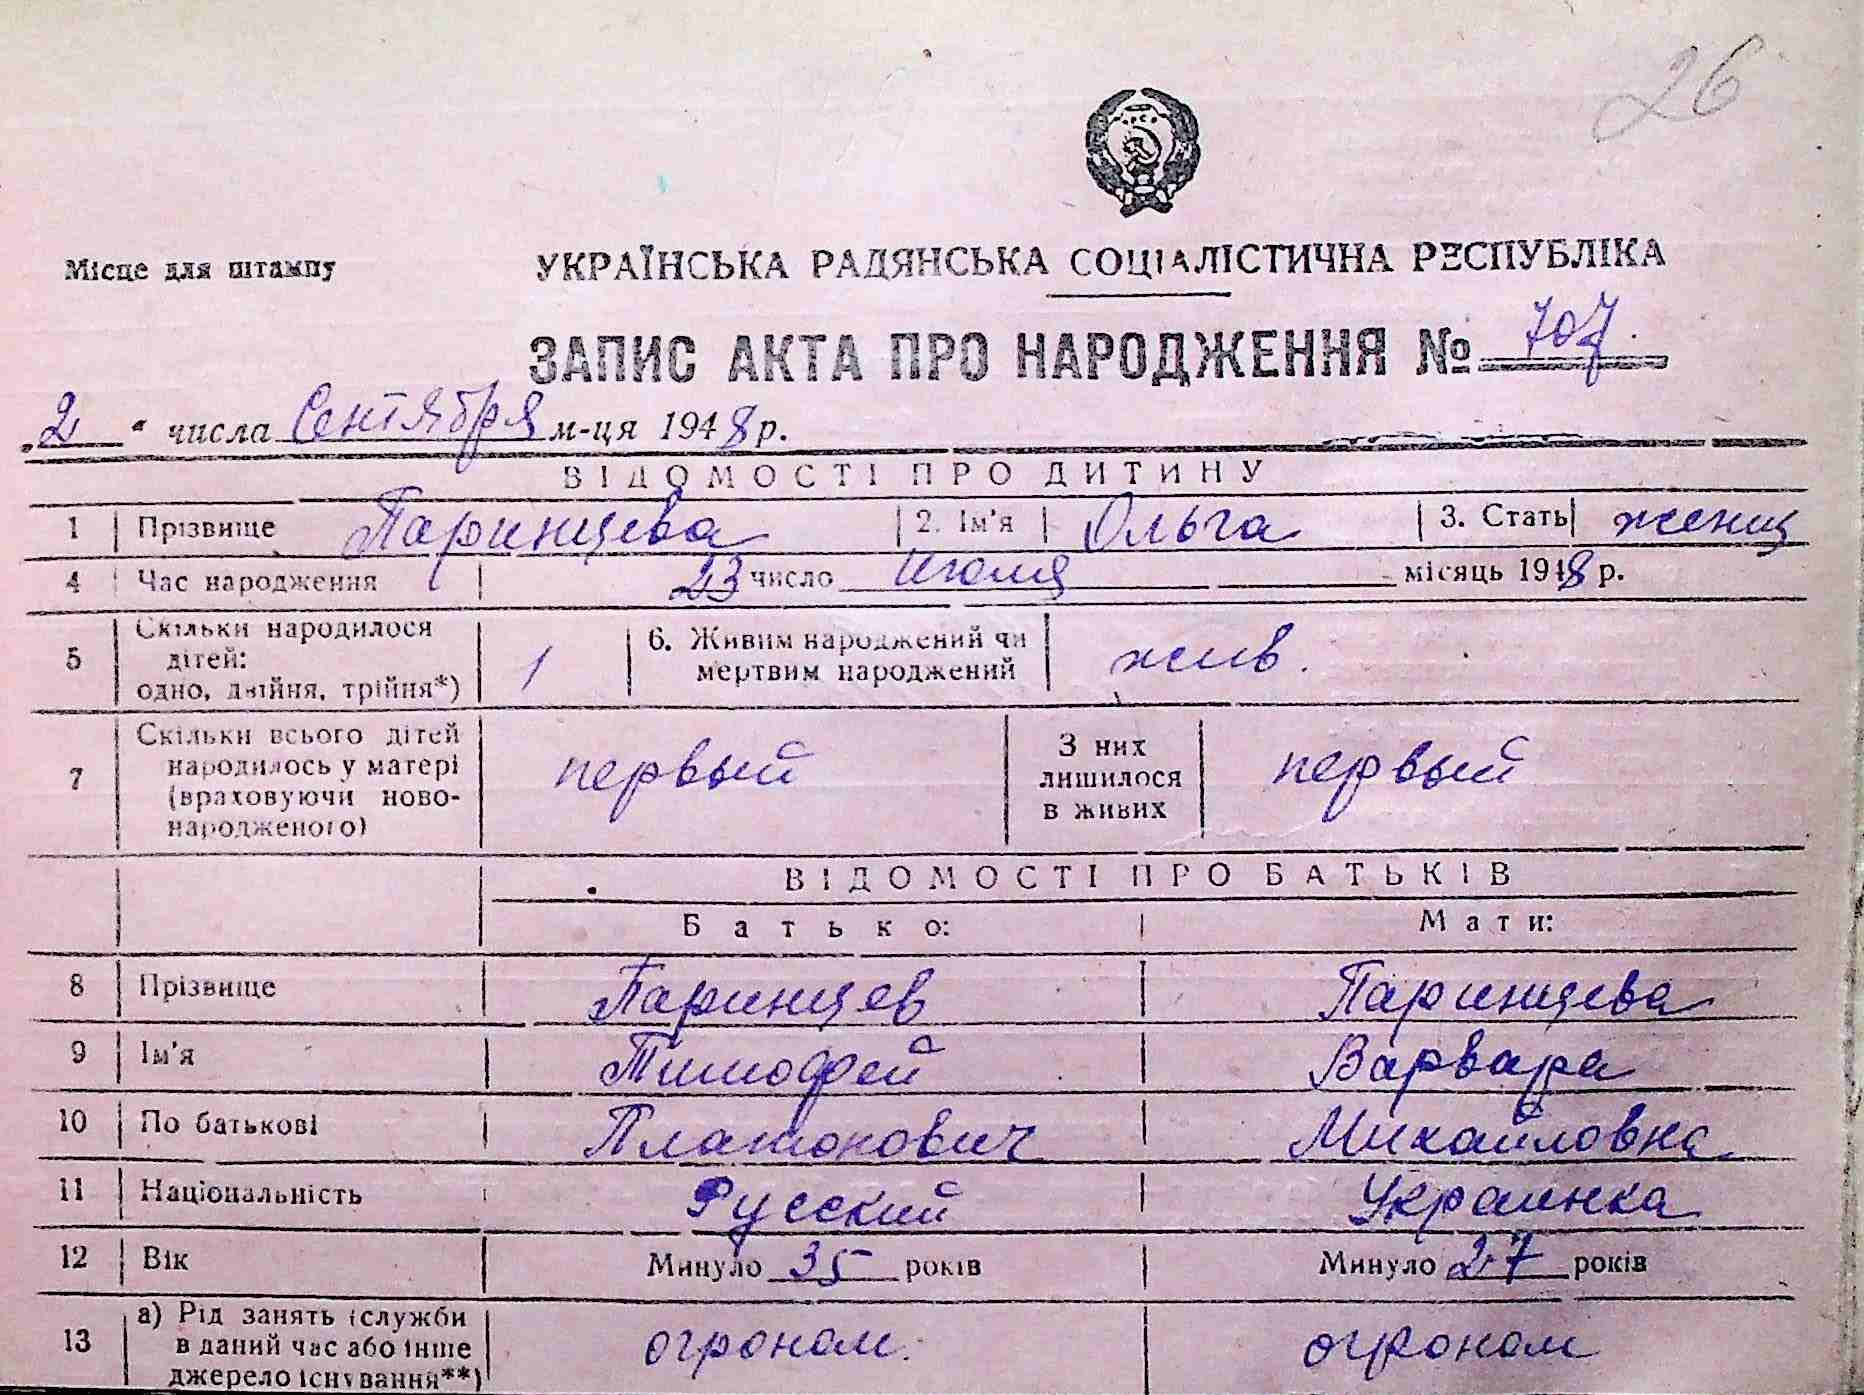 26
Місце для штампу
УКРАЇНСЬКА РАДЯНСЬКА СОЦІАЛІСТИЧНА РЕСПУБЛІКА
ЗАПИС АКТА ПРО НАРОДЖЕННЯ № 707.
„2“ числа Сентября м-ця 1948 р.
ВІДОМОСТІ ПРО ДИТИНУ
1 Прізвище Паринцева 2. Ім'я Ольга 3. Стать женщ
4 Час народження 23 число Июля місяць 1948 р.
5 Скільки народилося дітей: одно, двійня, трійня*) 1 6. Живим народжений чи мертвим народжений жив.
7 Скільки всього дітей народилось у матері (враховуючи новонародженого) первый З них лишилося в живих первый
ВІДОМОСТІ ПРО БАТЬКІВ
Батько: Мати:
8 Прізвище Паринцев Паринцева
9 Ім'я Тимофей Варвара
10 По батькові Платонович Михайловна
11 Національність Русский Украинка
12 Вік Минуло 35 років Минуло 27 років
13 а) Рід занять (служби в даний час або інше джерело існування**) огроном. огроном